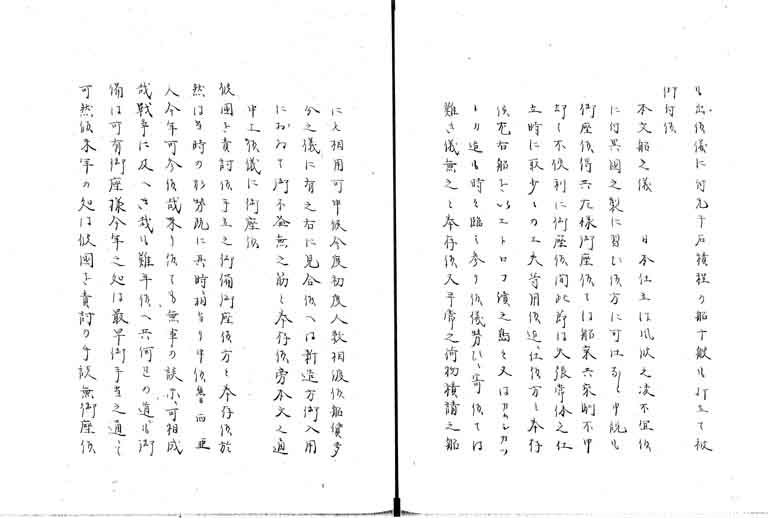 も出候儀に付凡千石積程の船十艘も打立て被
仰付候
本文船之儀 日本仕立は風波之凌不宜候
に付異國之製に習い候方に可仕哉と申説も
御座候得共左様御座候ては船乗共乗馴不申
却て不便利に御座候間此節は大張常体之仕
立時に取少々の工夫等用候迄仕候方と奉存
候尤右船をいエトロフ漬之馬を又はカムシカツ
トリ迄も時を臨み参り候儀勢い寄候ては
難き儀無之と奉存候又平常之荷物積請之船
に相用可申候今度初度人数相渡候船償多
分之儀に有之右に見合候へは新造方御入用
において御不益無之筋と奉存候旁本文之通
申上候儀に御座候
彼國を責討候手立之御備御座候方と奉存候於
然は当時の形勢既に其時相当り申候魯西亜
人今年可今候哉来り候ても無事の談示可相成
哉戦争に及へき哉も難斗候へ共何已の道も御
備は可有御座様今年之処は最早御手当之通に
可然候来年の処は彼國を責討の手談無御座候